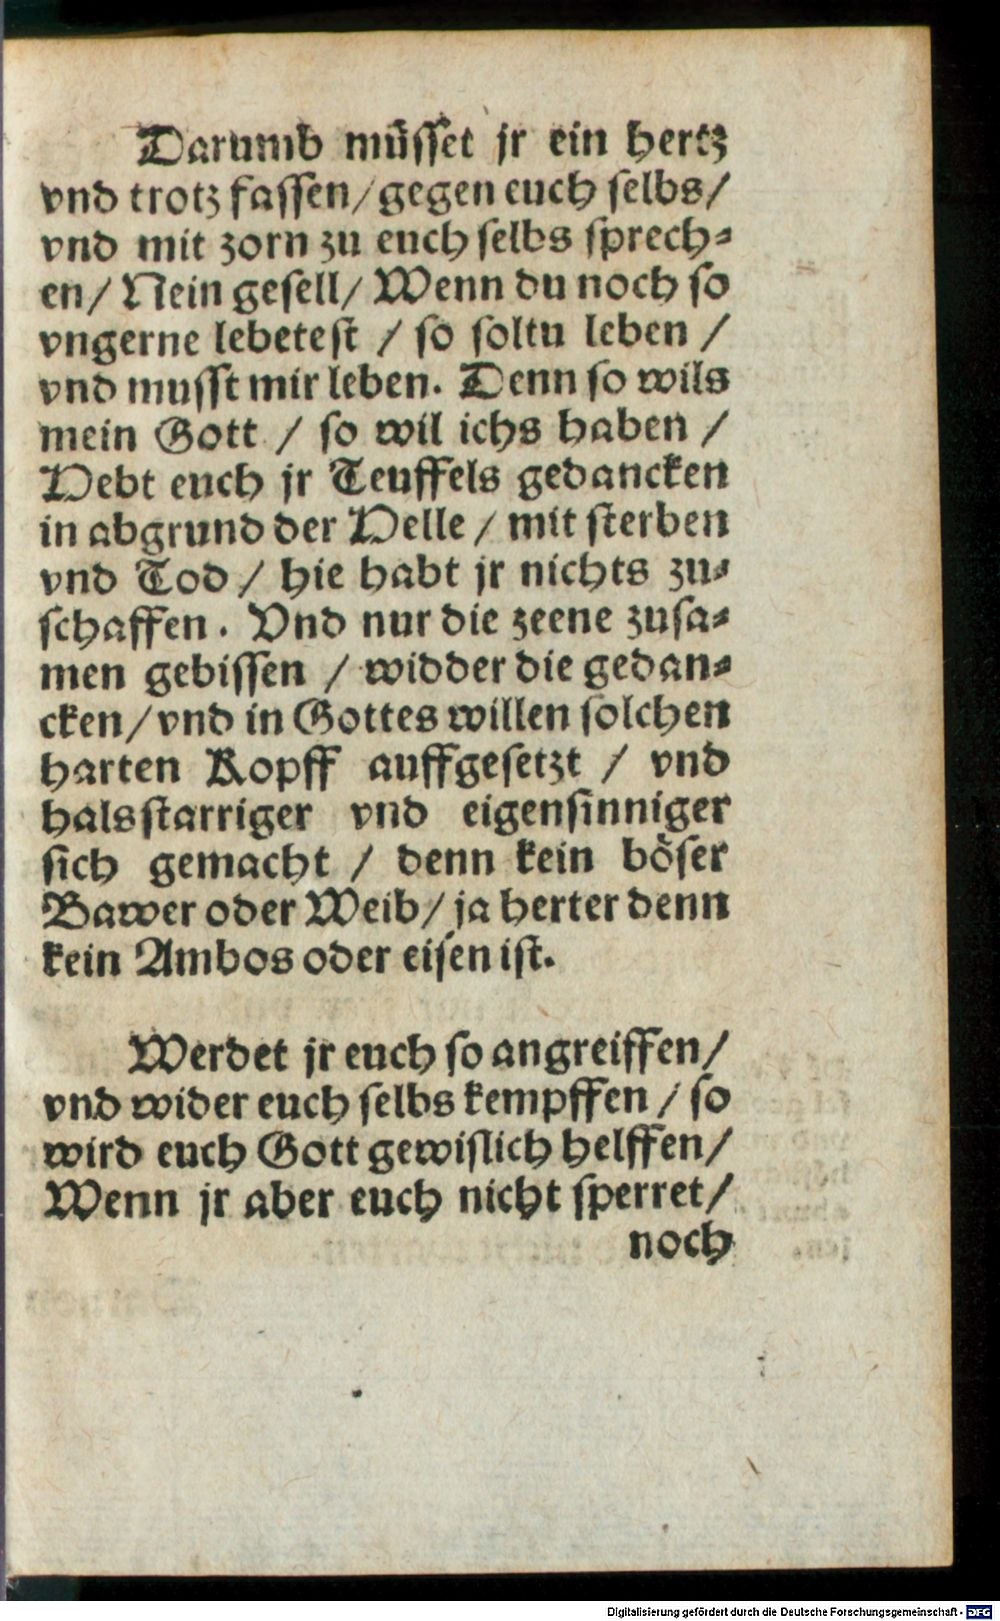 Darumb müsset jr ein hertz
vnd trotz fassen/gegen euch selbs/
vnd mit zorn zu euch selbs sprech⸗
en/ Nein gesell/ Wenn du noch so
vngerne lebetest / so soltu leben /
vnd musst mir leben. Denn so wils
mein Gott / so wil ichs haben /
Hebt euch jr Teuffels gedancken
in abgrund der Helle / mit sterben
vnd Tod / hie habt jr nichts zu⸗
schaffen. Vnd nur die zeene zusa⸗
men gebissen / widder die gedan⸗
cken/vnd in Gottes willen solchen
harten Kopff auffgesetzt / vnd
halsstarriger vnd eigensinniger
sich gemacht / denn kein böser
Bawer oder Weib/ ja herter denn
kein Ambos oder eisen ist.
Werdet jr euch so angreiffen/
vnd wider euch selbs kempffen / so
wird euch Gott gewislich helffen/
Wenn jr aber euch nicht sperret/
noch
Digitalisierung gefördert durch die Deutsche Forschungsgemeinschaft - DFG